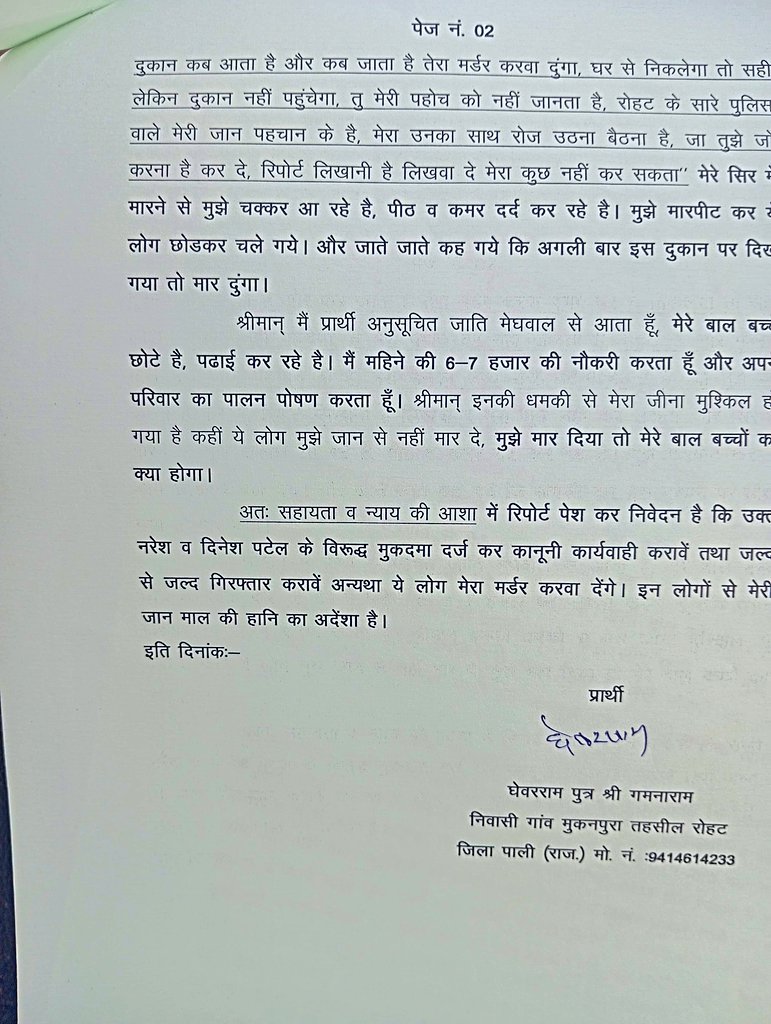 पेज नं. 02
दुकान कब आता है और कब जाता है तेरा मर्डर करवा दुंगा, घर से निकलेगा तो सही
लेकिन दुकान नहीं पहुंचेगा, तु मेरी पहोच को नहीं जानता है, रोहट के सारे पुलिस
वाले मेरी जान पहचान के है, मेरा उनका साथ रोज उठना बैठना है, जा तुझे जो
करना है कर दे, रिपोर्ट लिखानी है लिखवा दे मेरा कुछ नहीं कर सकता" मेरे सिर में
मारने से मुझे चक्कर आ रहे है, पीठ व कमर दर्द कर रहे है। मुझे मारपीट कर
लोग छोडकर चले गये। और जाते जाते कह गये कि अगली बार इस दुकान पर दिख
गया तो मार दुंगा।
श्रीमान् मैं प्रार्थी अनुसूचित जाति मेघवाल से आता हूँ, मेरे बाल बच्
छोटे है, पढाई कर रहे है। मैं महिने की 6–7 हजार की नौकरी करता हूँ और अपन
परिवार का पालन पोषण करता हूँ। श्रीमान् इनकी धमकी से मेरा जीना मुश्किल ह
गया है कहीं ये लोग मुझे जान से नहीं मार दे, मुझे मार दिया तो मेरे बाल बच्चों क
क्या होगा।
अतः सहायता व न्याय की आशा में रिपोर्ट पेश कर निवेदन है कि उक्त
नरेश व दिनेश पटेल के विरूद्ध मुकदमा दर्ज कर कानूनी कार्यवाही करावें तथा जल्द
से जल्द गिरफ्तार करावें अन्यथा ये लोग मेरा मर्डर करवा देंगे। इन लोगों से मेरी
जान माल की हानि का अदेंशा है।
इति दिनांकः–
प्रार्थी
घेवरराम
घेवरराम पुत्र श्री गमनाराम
निवासी गांव मुकनपुरा तहसील रोहट
जिला पाली (राज.) मो. नं. :9414614233